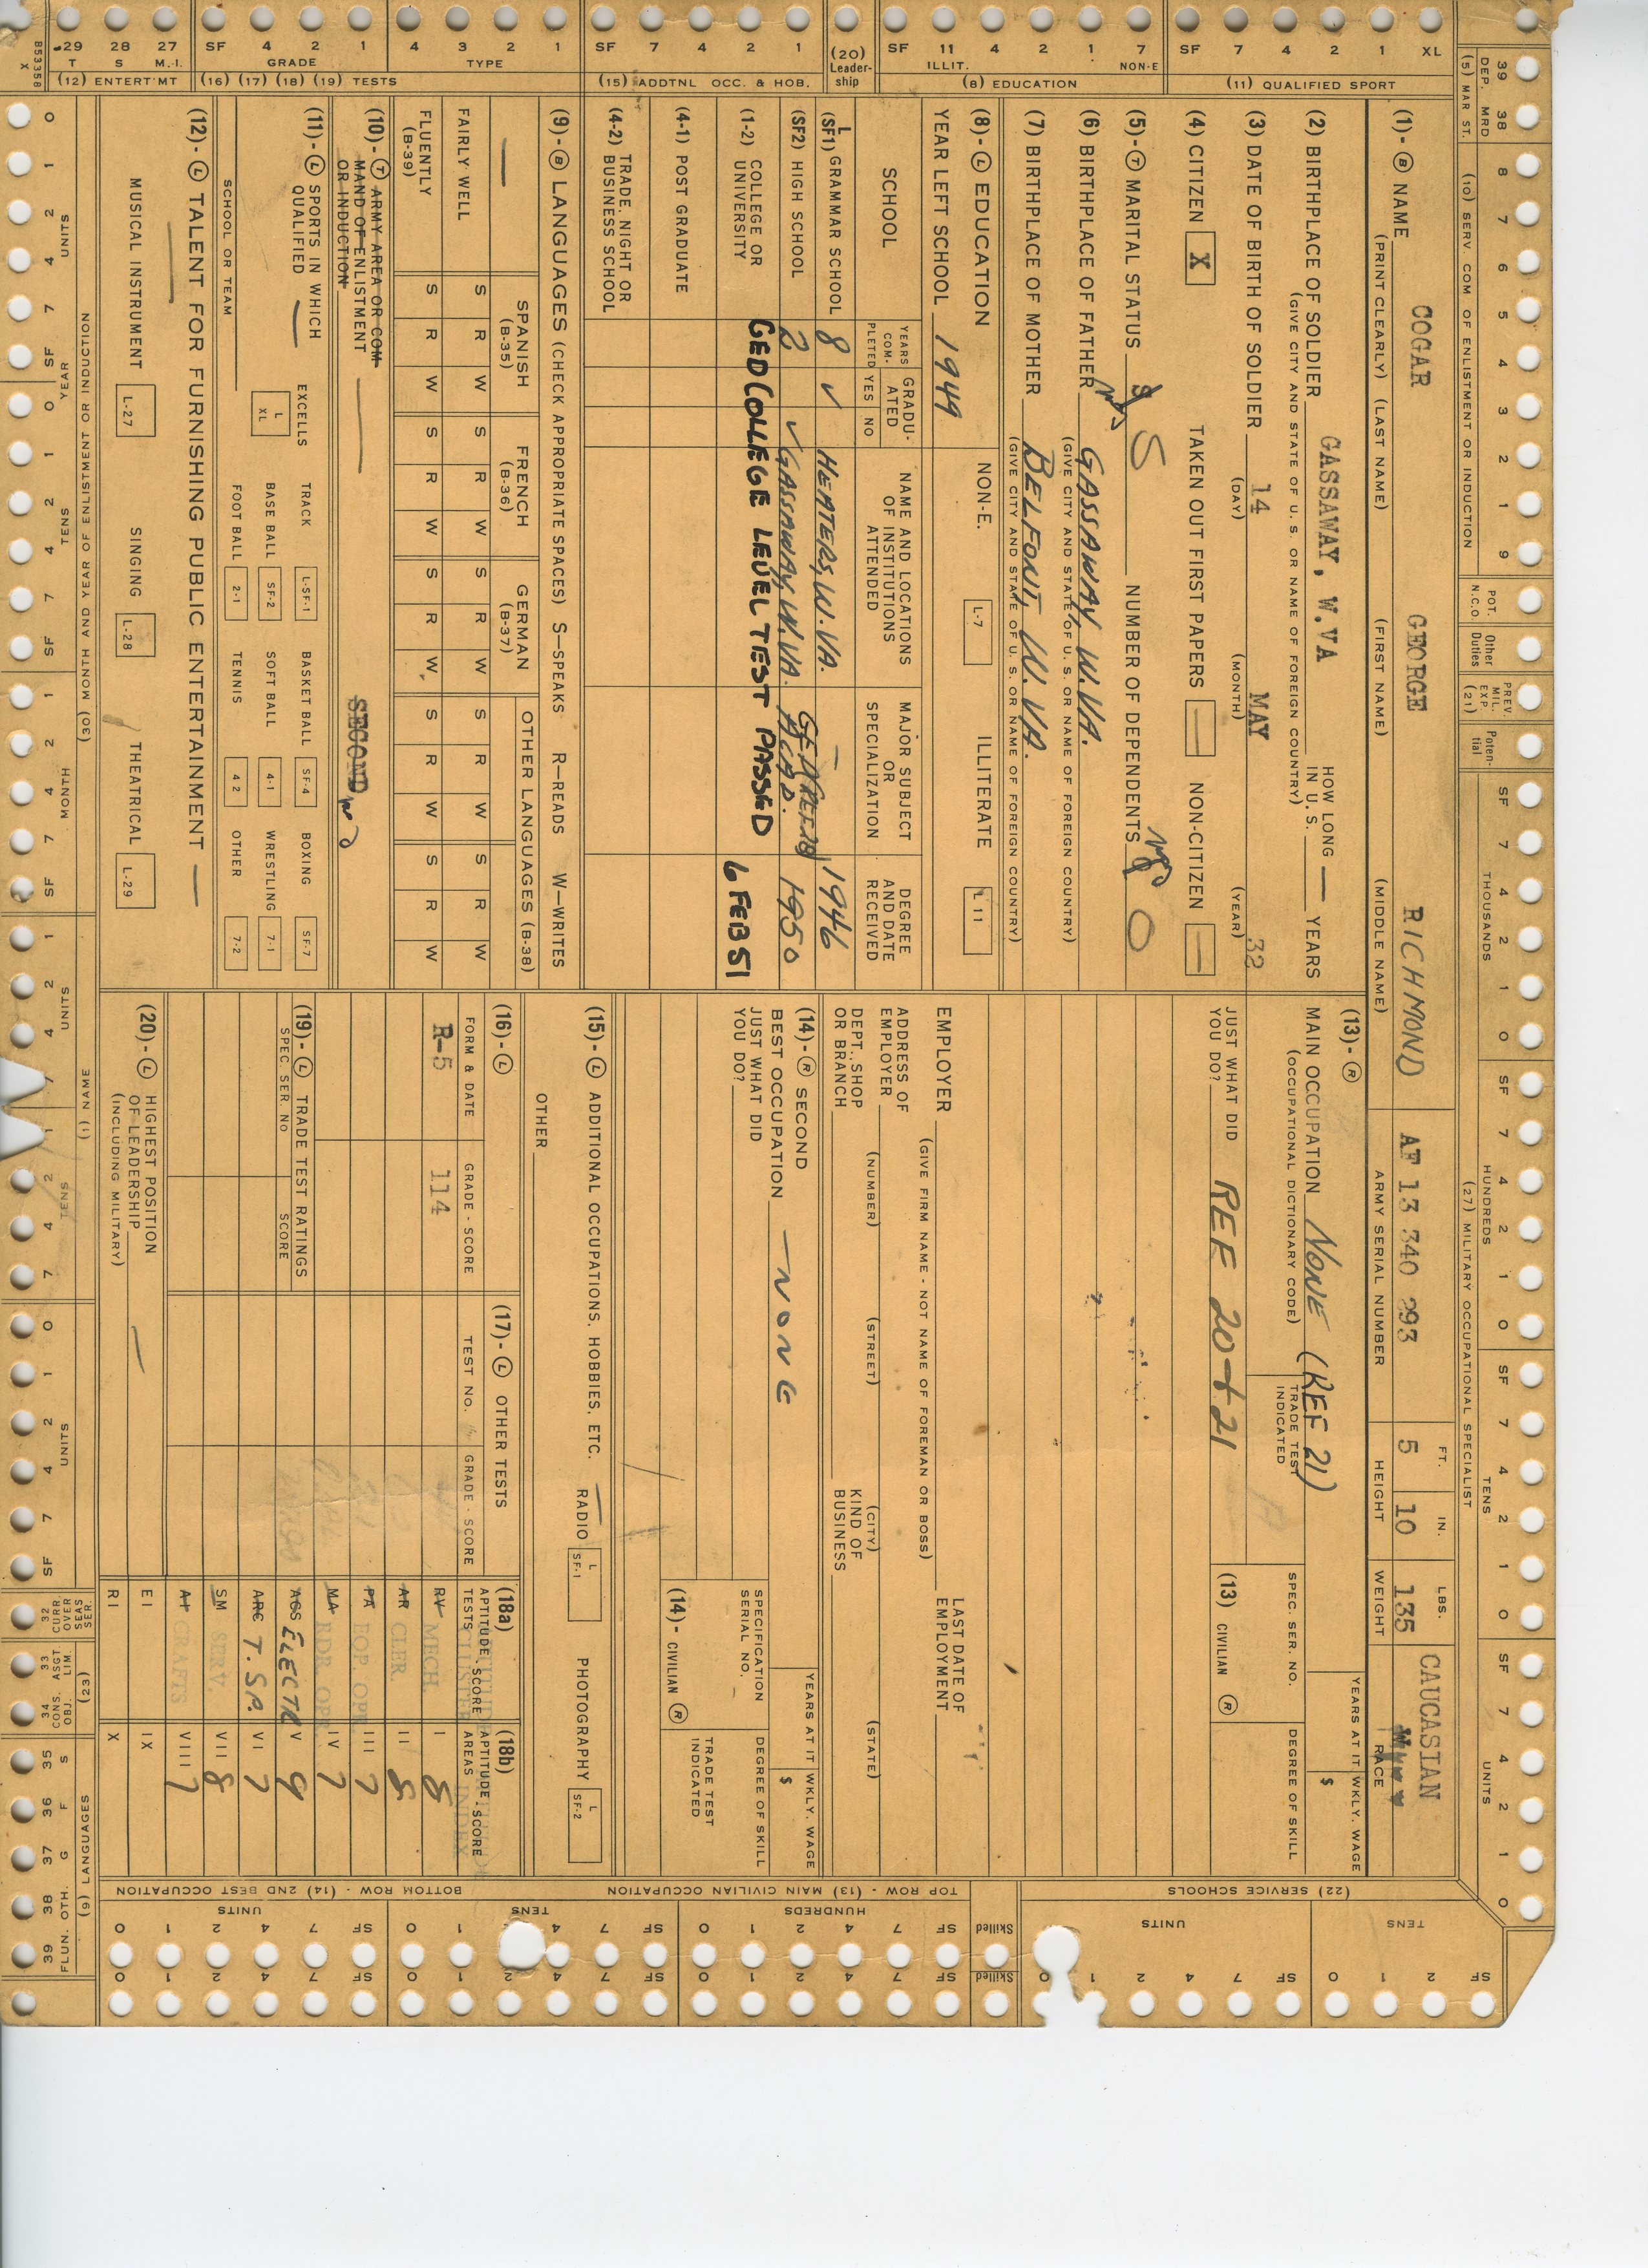 39 38 8 7 6 5 4 3 2 1 9 SF 7 4 2 1 0 SF 7 4 2 1 0 SF 7 4 2 1 0 SF 7 4 2 1 0
DEP. MRD POT. N.C.O. Other Duties PREV. MIL. EXP. (21) Potential THOUSANDS HUNDREDS TENS UNITS
(5) MAR ST. (10) SERV. COM OF ENLISTMENT OR INDUCTION (27) MILITARY OCCUPATIONAL SPECIALIST
(1)-Ⓑ NAME COGAR GEORGE RICHMOND AF 13 340 293 5 FT. 10 IN. 135 LBS. CAUCASIAN
(PRINT CLEARLY) (LAST NAME) (FIRST NAME) (MIDDLE NAME) ARMY SERIAL NUMBER HEIGHT WEIGHT RACE
(2) BIRTHPLACE OF SOLDIER GASSAWAY, W.VA HOW LONG IN U.S. — YEARS
(GIVE CITY AND STATE OF U. S. OR NAME OF FOREIGN COUNTRY)
(3) DATE OF BIRTH OF SOLDIER 14 MAY 32
(DAY) (MONTH) (YEAR)
(4) CITIZEN X TAKEN OUT FIRST PAPERS — NON-CITIZEN —
(5)-Ⓣ MARITAL STATUS S NUMBER OF DEPENDENTS 0
(6) BIRTHPLACE OF FATHER GASSAWAY, W.VA.
(GIVE CITY AND STATE OF U. S. OR NAME OF FOREIGN COUNTRY)
(7) BIRTHPLACE OF MOTHER BELFONT, W. VA.
(GIVE CITY AND STATE OF U. S. OR NAME OF FOREIGN COUNTRY)
(8)-Ⓛ EDUCATION NON-E. L-7 ILLITERATE L 11
YEAR LEFT SCHOOL 1949
SCHOOL YEARS COM-PLETED GRADU-ATED YES NO NAME AND LOCATIONS OF INSTITUTIONS ATTENDED MAJOR SUBJECT OR SPECIALIZATION DEGREE AND DATE RECEIVED
L (SF1) GRAMMAR SCHOOL 8 ✓ HEATERS, W.VA. — 1946
(SF2) HIGH SCHOOL 2 ✓ GASSAWAY, W.VA. ACAD. 1950
(1-2) COLLEGE OR UNIVERSITY GED COLLEGE LEVEL TEST PASSED 6 FEB 51
(4-1) POST GRADUATE
(4-2) TRADE, NIGHT OR BUSINESS SCHOOL
(9)-Ⓑ LANGUAGES (CHECK APPROPRIATE SPACES) S—SPEAKS R—READS W—WRITES
— SPANISH (B-35) FRENCH (B-36) GERMAN (B-37) OTHER LANGUAGES (B-38)
FAIRLY WELL S R W S R W S R W S R W S R W
FLUENTLY (B-39) S R W S R W S R W S R W S R W
(10)-Ⓣ ARMY AREA OR COMMAND OF ENLISTMENT OR INDUCTION — SECOND
(11)-Ⓛ SPORTS IN WHICH QUALIFIED — EXCELLS L XL
TRACK L-SF-1 BASKET BALL SF-4 BOXING SF-7
BASE BALL SF-2 SOFT BALL 4-1 WRESTLING 7-1
SCHOOL OR TEAM FOOT BALL 2-1 TENNIS 4 2 OTHER 7-2
(12)-Ⓛ TALENT FOR FURNISHING PUBLIC ENTERTAINMENT —
MUSICAL INSTRUMENT L-27 SINGING L-28 THEATRICAL L-29
(13)-Ⓡ
MAIN OCCUPATION NONE (REF 21) YEARS AT IT WKLY. WAGE $
(OCCUPATIONAL DICTIONARY CODE) TRADE TEST INDICATED SPEC. SER. NO. DEGREE OF SKILL
JUST WHAT DID YOU DO? REF 20 + 21 (13) CIVILIAN Ⓡ
EMPLOYER LAST DATE OF EMPLOYMENT
(GIVE FIRM NAME - NOT NAME OF FOREMAN OR BOSS)
ADDRESS OF EMPLOYER
(NUMBER) (STREET) (CITY) (STATE)
DEPT., SHOP OR BRANCH KIND OF BUSINESS
(14)-Ⓡ SECOND BEST OCCUPATION — NONE YEARS AT IT WKLY. WAGE $
JUST WHAT DID YOU DO? SPECIFICATION SERIAL NO. DEGREE OF SKILL
(14)- CIVILIAN Ⓡ TRADE TEST INDICATED
(15)-Ⓛ ADDITIONAL OCCUPATIONS, HOBBIES, ETC. — RADIO L SF-1 PHOTOGRAPHY L SF-2
OTHER
(16)-Ⓛ (17)-Ⓛ OTHER TESTS (18a) APTITUDE TESTS SCORE (18b) APTITUDE AREAS SCORE
FORM & DATE GRADE - SCORE TEST NO. GRADE - SCORE
R-5 114 RV MECH. I 8
AR CLER. II 8
PA EQP. OPR. III 7
MA RDR. OPR. IV 7
(19)-Ⓛ TRADE TEST RATINGS ACS ELECTR V 9
SPEC. SER NO SCORE
ARC T. SP. VI 7
SM SERV. VII 8
AI CRAFTS VIII 7
EI IX
RI X
(20)-Ⓛ HIGHEST POSITION OF LEADERSHIP —
(INCLUDING MILITARY)
XL 1 2 4 7 SF (11) QUALIFIED SPORT
7 1 2 4 11 SF NON-E ILLIT. (8) EDUCATION
(20) Leadership
1 2 4 7 SF (15) ADDTNL OCC. & HOB.
1 2 3 4 TYPE 1 2 4 SF GRADE (16) (17) (18) (19) TESTS
27 28 29 M.-I. S T (12) ENTERT'MT
B53358 X
(22) SERVICE SCHOOLS TENS UNITS
TOP ROW - (13) MAIN CIVILIAN OCCUPATION
BOTTOM ROW - (14) 2ND BEST OCCUPATION
Skilled HUNDREDS TENS UNITS
Skilled
(30) MONTH AND YEAR OF ENLISTMENT OR INDUCTION
UNITS YEAR TENS MONTH
(1) NAME UNITS TENS UNITS
SER. OVER SEAS CURR. 32 LIM ASGT 33 CONS. OBJ. 34 (23)
S F G OTH. FLUN. 35 36 37 38 39 (9) LANGUAGES